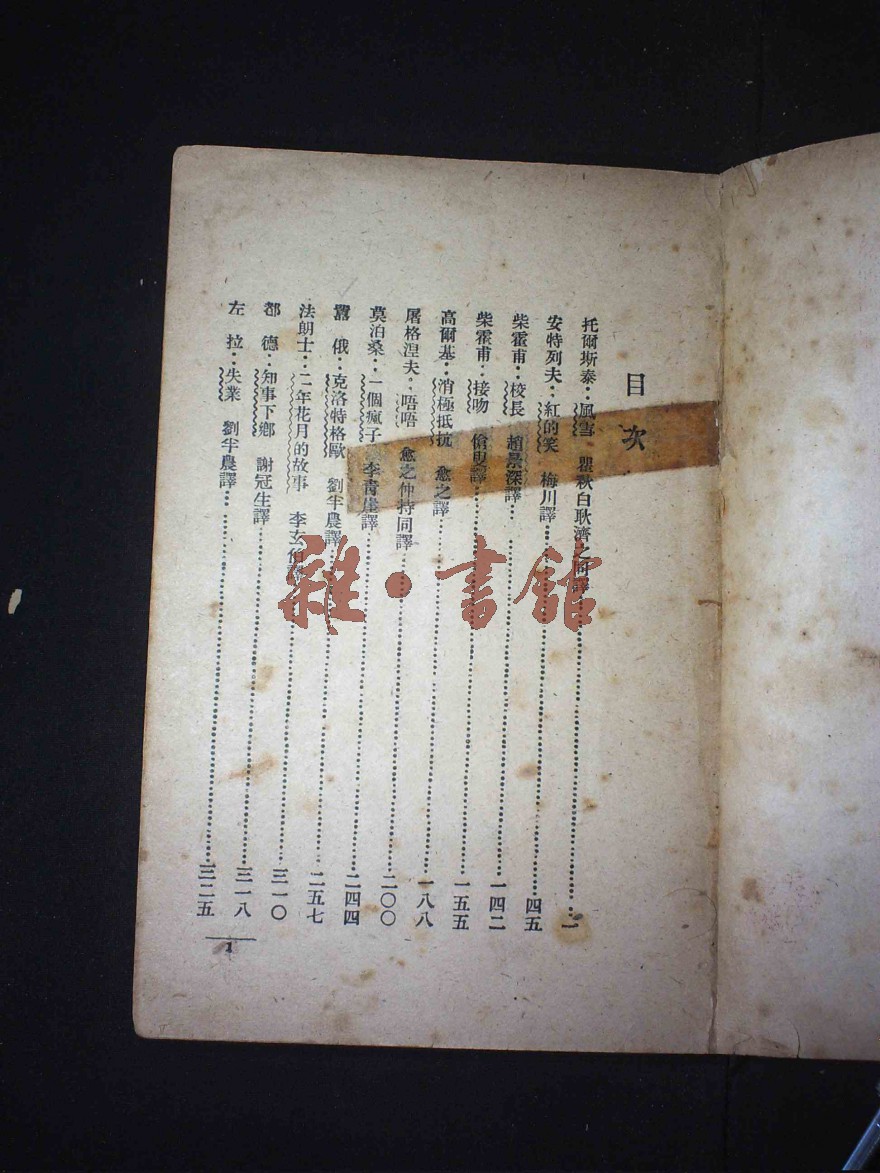 目次
托爾斯泰：風雪　瞿秋白耿濟之同譯……一
安特列夫：紅的笑　梅川譯……四五
柴霍甫：校長　趙景深譯……一四二
柴霍甫：接吻　譯……一五五
高爾基：消極抵抗　愈之譯……一八八
屠格涅夫：唔唔　愈之仲持同譯……二〇〇
莫泊桑：一個瘋子　李青崖譯……二四四
囂俄：克洛特格歐　劉半農譯……二五七
法朗士：二年花月的故事　李玄伯譯……三一〇
都德：知事下鄉　謝冠生譯……三一八
左拉：失業　劉半農譯……三二五
1
雜·書舘